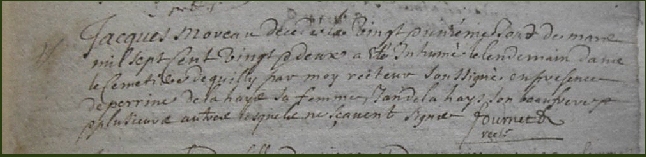 Jacques Moreau decedé le vingt deuxième jour de mars
mil sept cent vingt & deux a esté Inhumé le lendemain dans
le Cemetiere de quilly par moy recteur soussigné en presence
de perrine delahaye sa femme, Jan delahaye son beaufrere &
plusieurs autres lesquels ne sçauent signer
Journet
rect